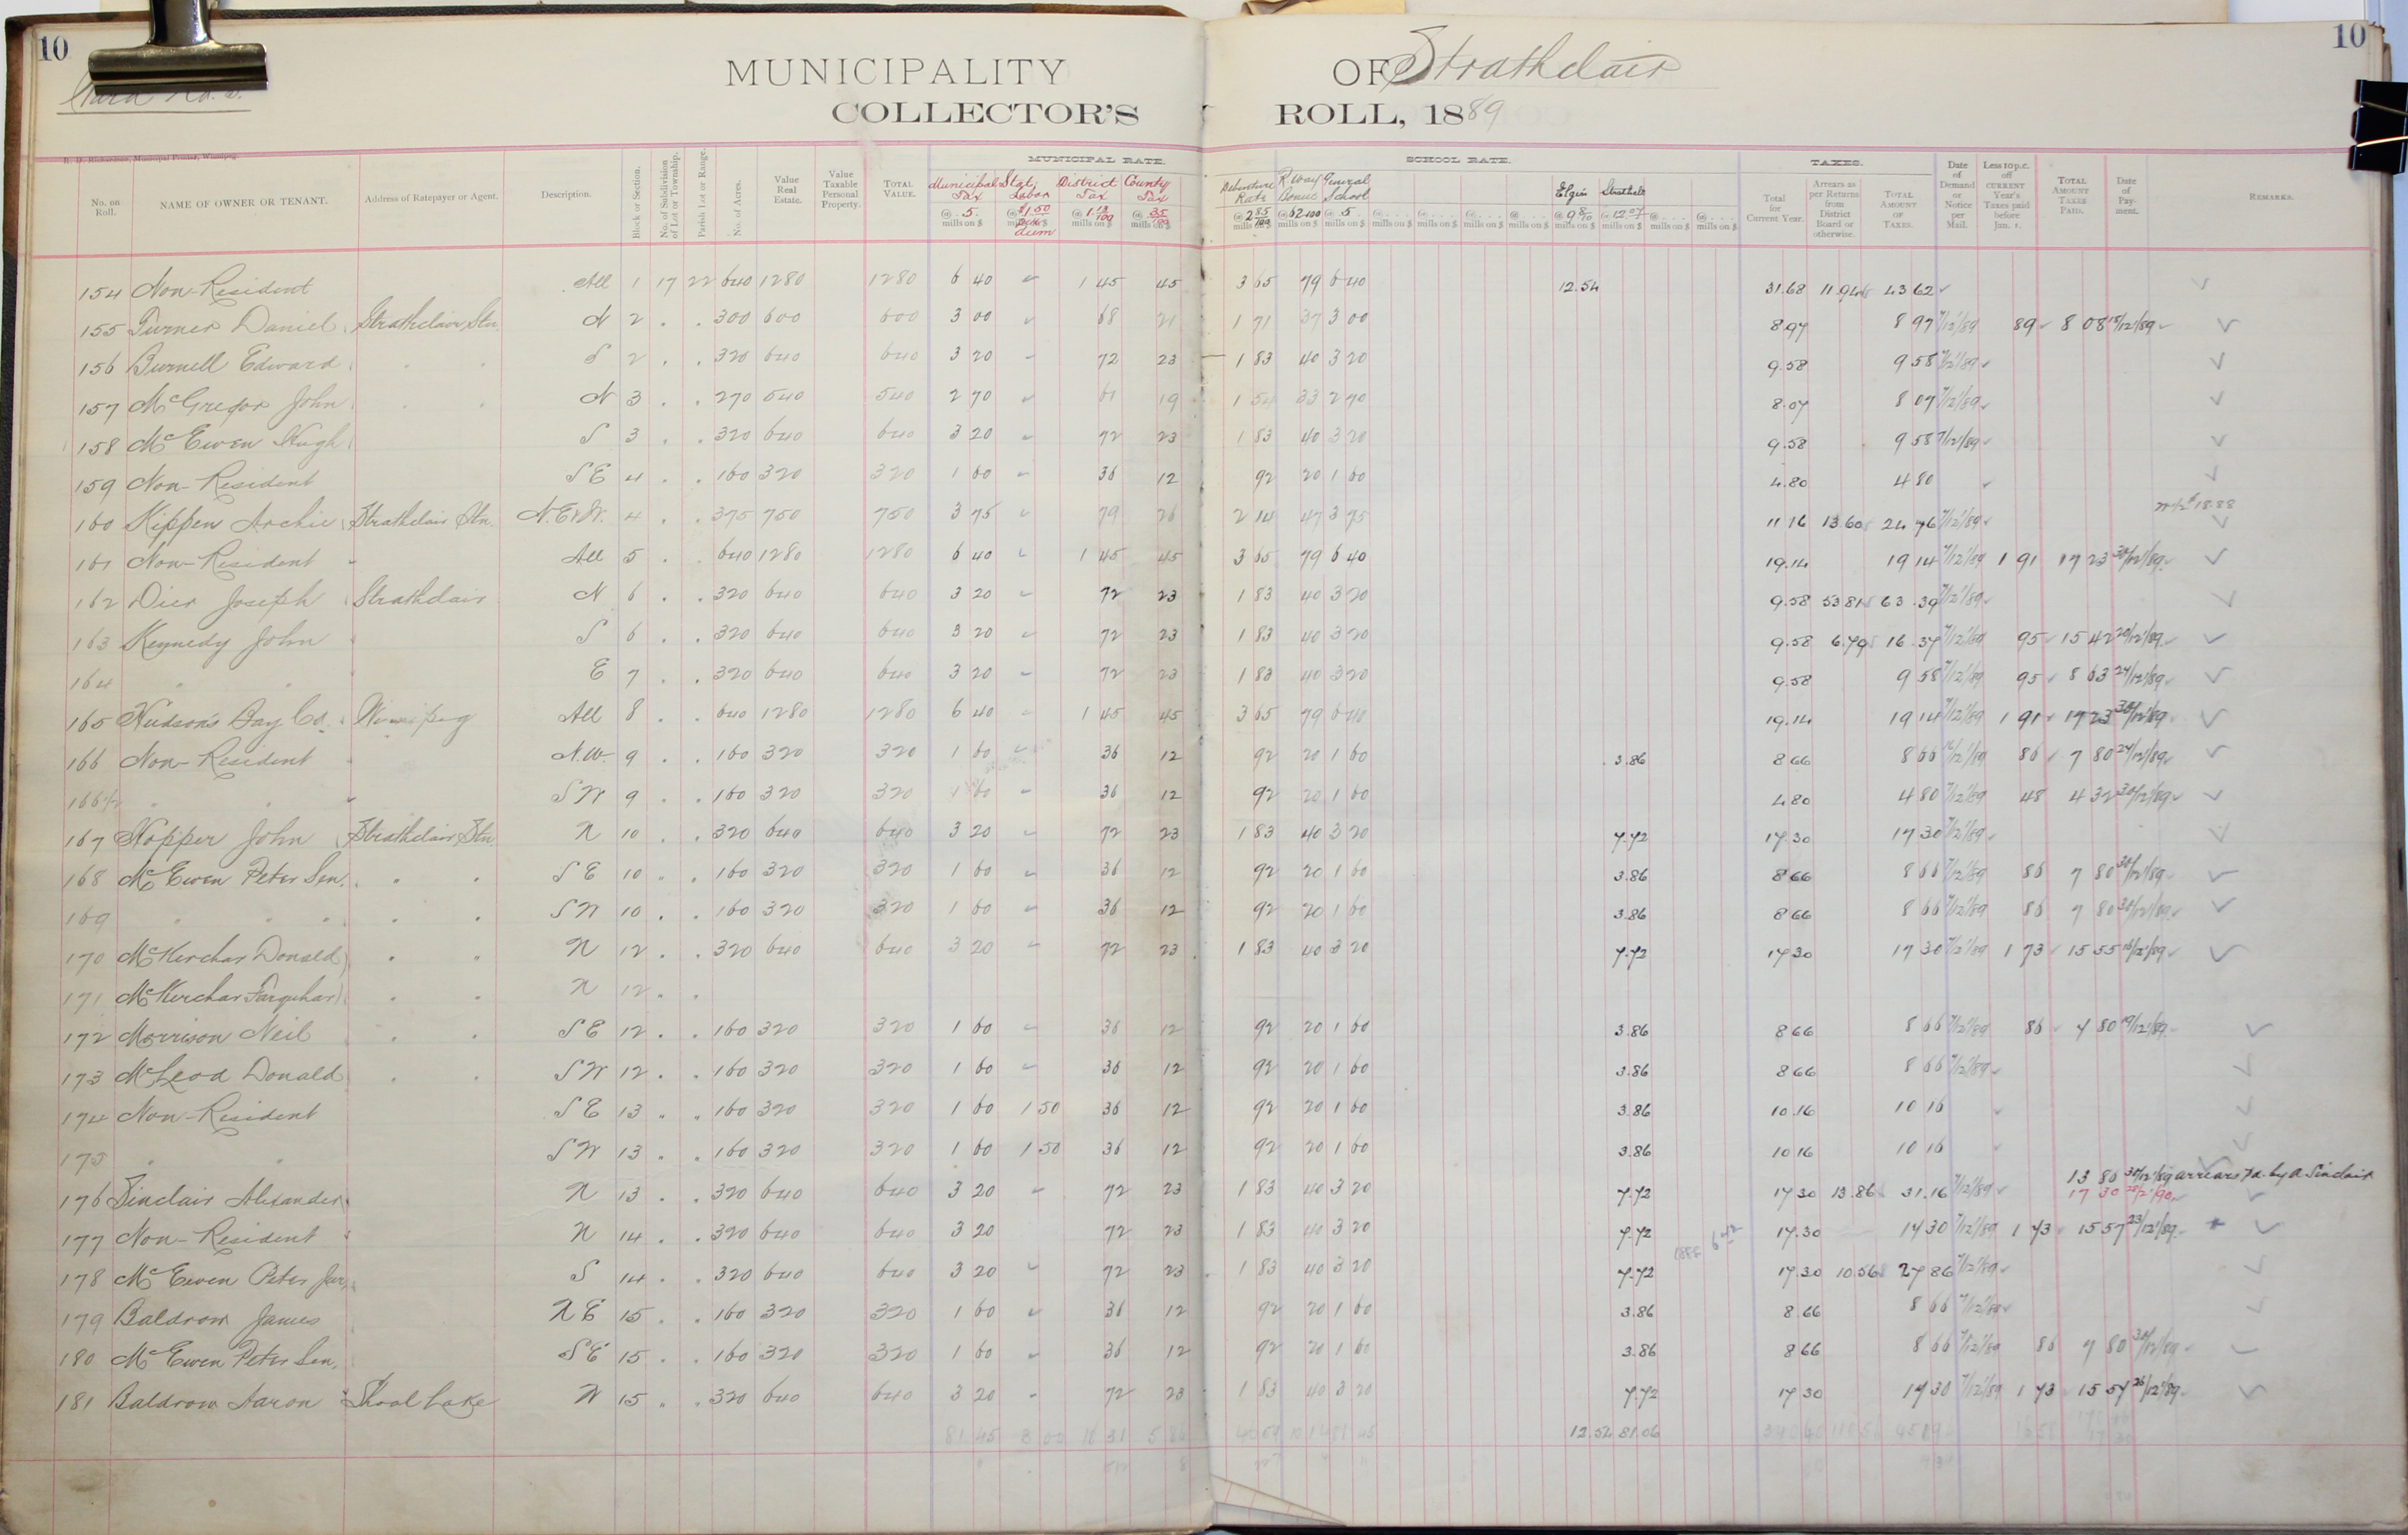 10
10
MUNICIPALITY OF Strathclair
COLLECTOR'S ROLL, 1889
R. D. Richardson, Municipal Printer, Winnipeg.
MUNICIPAL RATE. SCHOOL RATE. TAXES.
No. on Roll. NAME OF OWNER OR TENANT. Address of Ratepayer or Agent. Description. Block or Section. No. of Subdivision of Lot or Township. Parish Lot or Range. No. of Acres. Value Real Estate. Value Taxable Personal Property. TOTAL VALUE. Municipal Tax @ 5 mills on $ District Tax @ 1 13/100 mills on $ County Tax @ 35/100 mills on $ Debenture Rate @ 2 85/100 mills on $ R. Way Bonus General School @ 5 mills on $ Elgin @ 9 8/10 mills on $ Strathclr @ 12.07 mills on $ Total for Current Year. Arrears as per Returns from District Board or otherwise. TOTAL AMOUNT OF TAXES. Date of Demand or Notice per Mail. Less 10 p.c. off CURRENT Year's Taxes paid before Jan. 1. TOTAL AMOUNT TAXES PAID. Date of Payment. REMARKS.
154 Non-Resident All 1 17 22 640 1280 1280 6 40 1 45 45 3 65 79 6 40 12.54 31.68 11.94 43 62
155 Turner Daniel Strathclair Stn. N 2 . . 300 600 600 3 00 68 21 1 71 37 3 00 8.97 8 97 7/12/89 89 8 08 18/12/89
156 Burnell Edward . . S 2 . . 320 640 640 3 20 72 23 1 83 40 3 20 9.58 9 58 7/12/89
157 McGregor John . . N 3 . . 270 540 540 2 70 61 19 1 54 33 2 70 8.07 8 07 7/12/89
158 McEwen Hugh S 3 . . 320 640 640 3 20 72 23 1 83 40 3 20 9.58 9 58 7/12/89
159 Non-Resident S E 4 . . 160 320 320 1 60 36 12 92 20 1 60 4.80 4 80
160 Kippen Archie Strathclair Stn. N. E & W. 4 . . 375 750 750 3 75 79 26 2 14 47 3 75 11 16 13.60 24 76 7/12/89
161 Non-Resident All 5 . 640 1280 1280 6 40 1 45 45 3 65 79 6 40 19.14 19 14 7/12/89 1 91 17 23 30/12/89
162 Dier Joseph Strathclair N 6 . . 320 640 640 3 20 72 23 1 83 40 3 20 9.58 53 81 63.39 7/12/89
163 Kennedy John S 6 . . 320 640 640 3 20 72 23 1 83 40 3 20 9.58 6.79 16.37 7/12/89 95 15 42 20/12/89
164 " " E 7 . . 320 640 640 3 20 72 23 1 83 40 3 20 9.58 9 58 7/12/89 95 8 63 24/12/89
165 Hudson's Bay Co. Winnipeg All 8 . . 640 1280 1280 6 40 1 45 45 3 65 79 6 40 19.14 19 14 7/12/89 1 91 17 23 30/12/89
166 Non-Resident N.W. 9 . . 160 320 320 1 60 36 12 92 20 1 60 3.86 8 66 8 66 16/12/89 86 7 80 24/12/89
166 1/2 " " S W 9 . . 160 320 320 1 60 36 12 92 20 1 60 4.80 4 80 7/12/89 48 4 32 30/12/89
167 Hopper John Strathclair Stn N 10 . . 320 640 640 3 20 72 23 1 83 40 3 20 7.72 17.30 17 30 7/12/89
168 McEwen Peter Sen. . . S E 10 . . 160 320 320 1 60 36 12 92 20 1 60 3.86 8 66 8 66 7/12/89 86 7 80 30/12/89
169 " " " . . S W 10 . . 160 320 320 1 60 36 12 92 20 1 60 3.86 8 66 8 66 7/12/89 86 7 80 30/12/89
170 McKerchar Donald . " N 12 . . 320 640 640 3 20 72 23 1 83 40 3 20 7.72 17 30 17 30 7/12/89 1 73 15 55 16/12/89
171 McKerchar Farquhar . " N 12 . .
172 Morrison Neil . . S E 12 . . 160 320 320 1 60 36 12 92 20 1 60 3.86 8 66 8 66 7/12/89 86 7 80 19/12/89
173 McLeod Donald . . S W 12 . . 160 320 320 1 60 36 12 92 20 1 60 3.86 8 66 8 66 7/12/89
174 Non-Resident S E 13 " " 160 320 320 1 60 1 50 36 12 92 20 1 60 3.86 10.16 10 16
175 " " S W 13 . " 160 320 320 1 60 1 50 36 12 92 20 1 60 3.86 10 16 10 16
13 86 30/12/89 arrears pd. by A Sinclair
176 Sinclair Alexander N 13 . . 320 640 640 3 20 72 23 1 83 40 3 20 7.72 17 30 13.86 31.16 7/12/89 17 30
177 Non-Resident N 14 . . 320 640 640 3 20 72 23 1 83 40 3 20 7.72 17.30 17 30 7/12/89 1 73 15 57 23/12/89
178 McEwen Peter Jun. S 14 . . 320 640 640 3 20 72 23 1 83 40 3 20 7.72 17.30 10.56 27 86 7/12/89
179 Baldrow James N E 15 . . 160 320 320 1 60 36 12 92 20 1 60 3.86 8.66 8 66 7/12/89
180 McEwen Peter Sen. S E 15 . . 160 320 320 1 60 36 12 92 20 1 60 3.86 8 66 8 66 7/12/89 86 7 80 30/12/89
181 Baldrow Aaron Shoal Lake W 15 " . 320 640 640 3 20 72 23 1 83 40 3 20 7.72 17 30 17 30 7/12/89 1 73 15 57 26/12/89
81 45 81.06